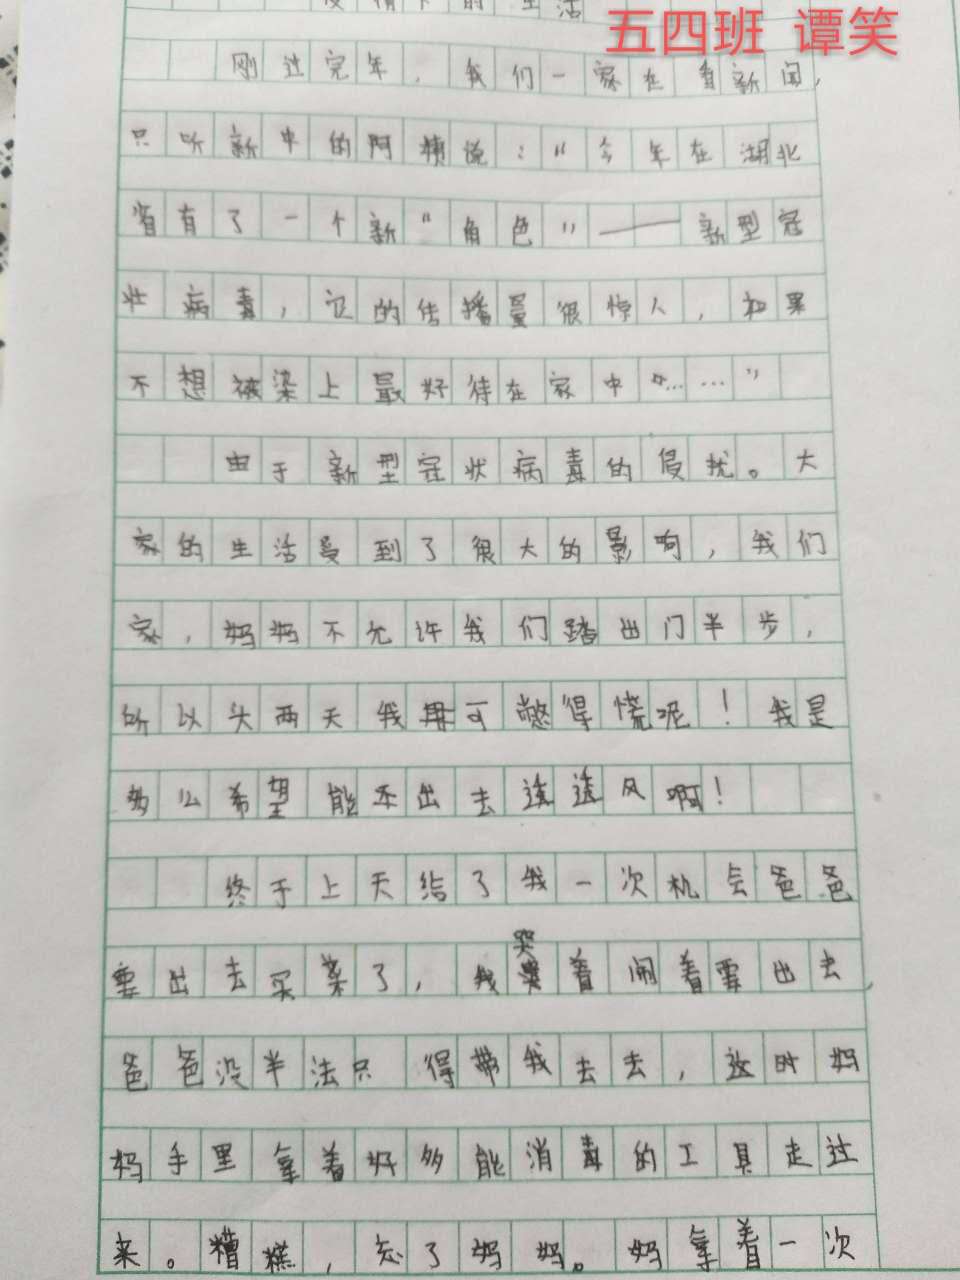 疫情下的生活
五四班 谭笑
刚过完年，我们一家在看新闻，
只听新中的阿姨说：“今年在湖北
省有了一个新“角色”——新型冠
壮病毒，它的传播量很惊人，如果
不想被染上最好待在家中“……”
由于新型冠状病毒的侵扰。大
家的生活受到了很大的影响，我们
家，妈妈不允许我们踏出门半步，
所以头两天我可憋得慌呢！我是
多么希望能出去透透风啊！
终于上天给了我一次机会爸爸
要出去买菜了，我哭着闹着要出去，
爸爸没半法只得带我去去，这时妈
妈手里拿着好多能消毒的工具走过
来。糟糕，忘了妈妈。妈拿着一次